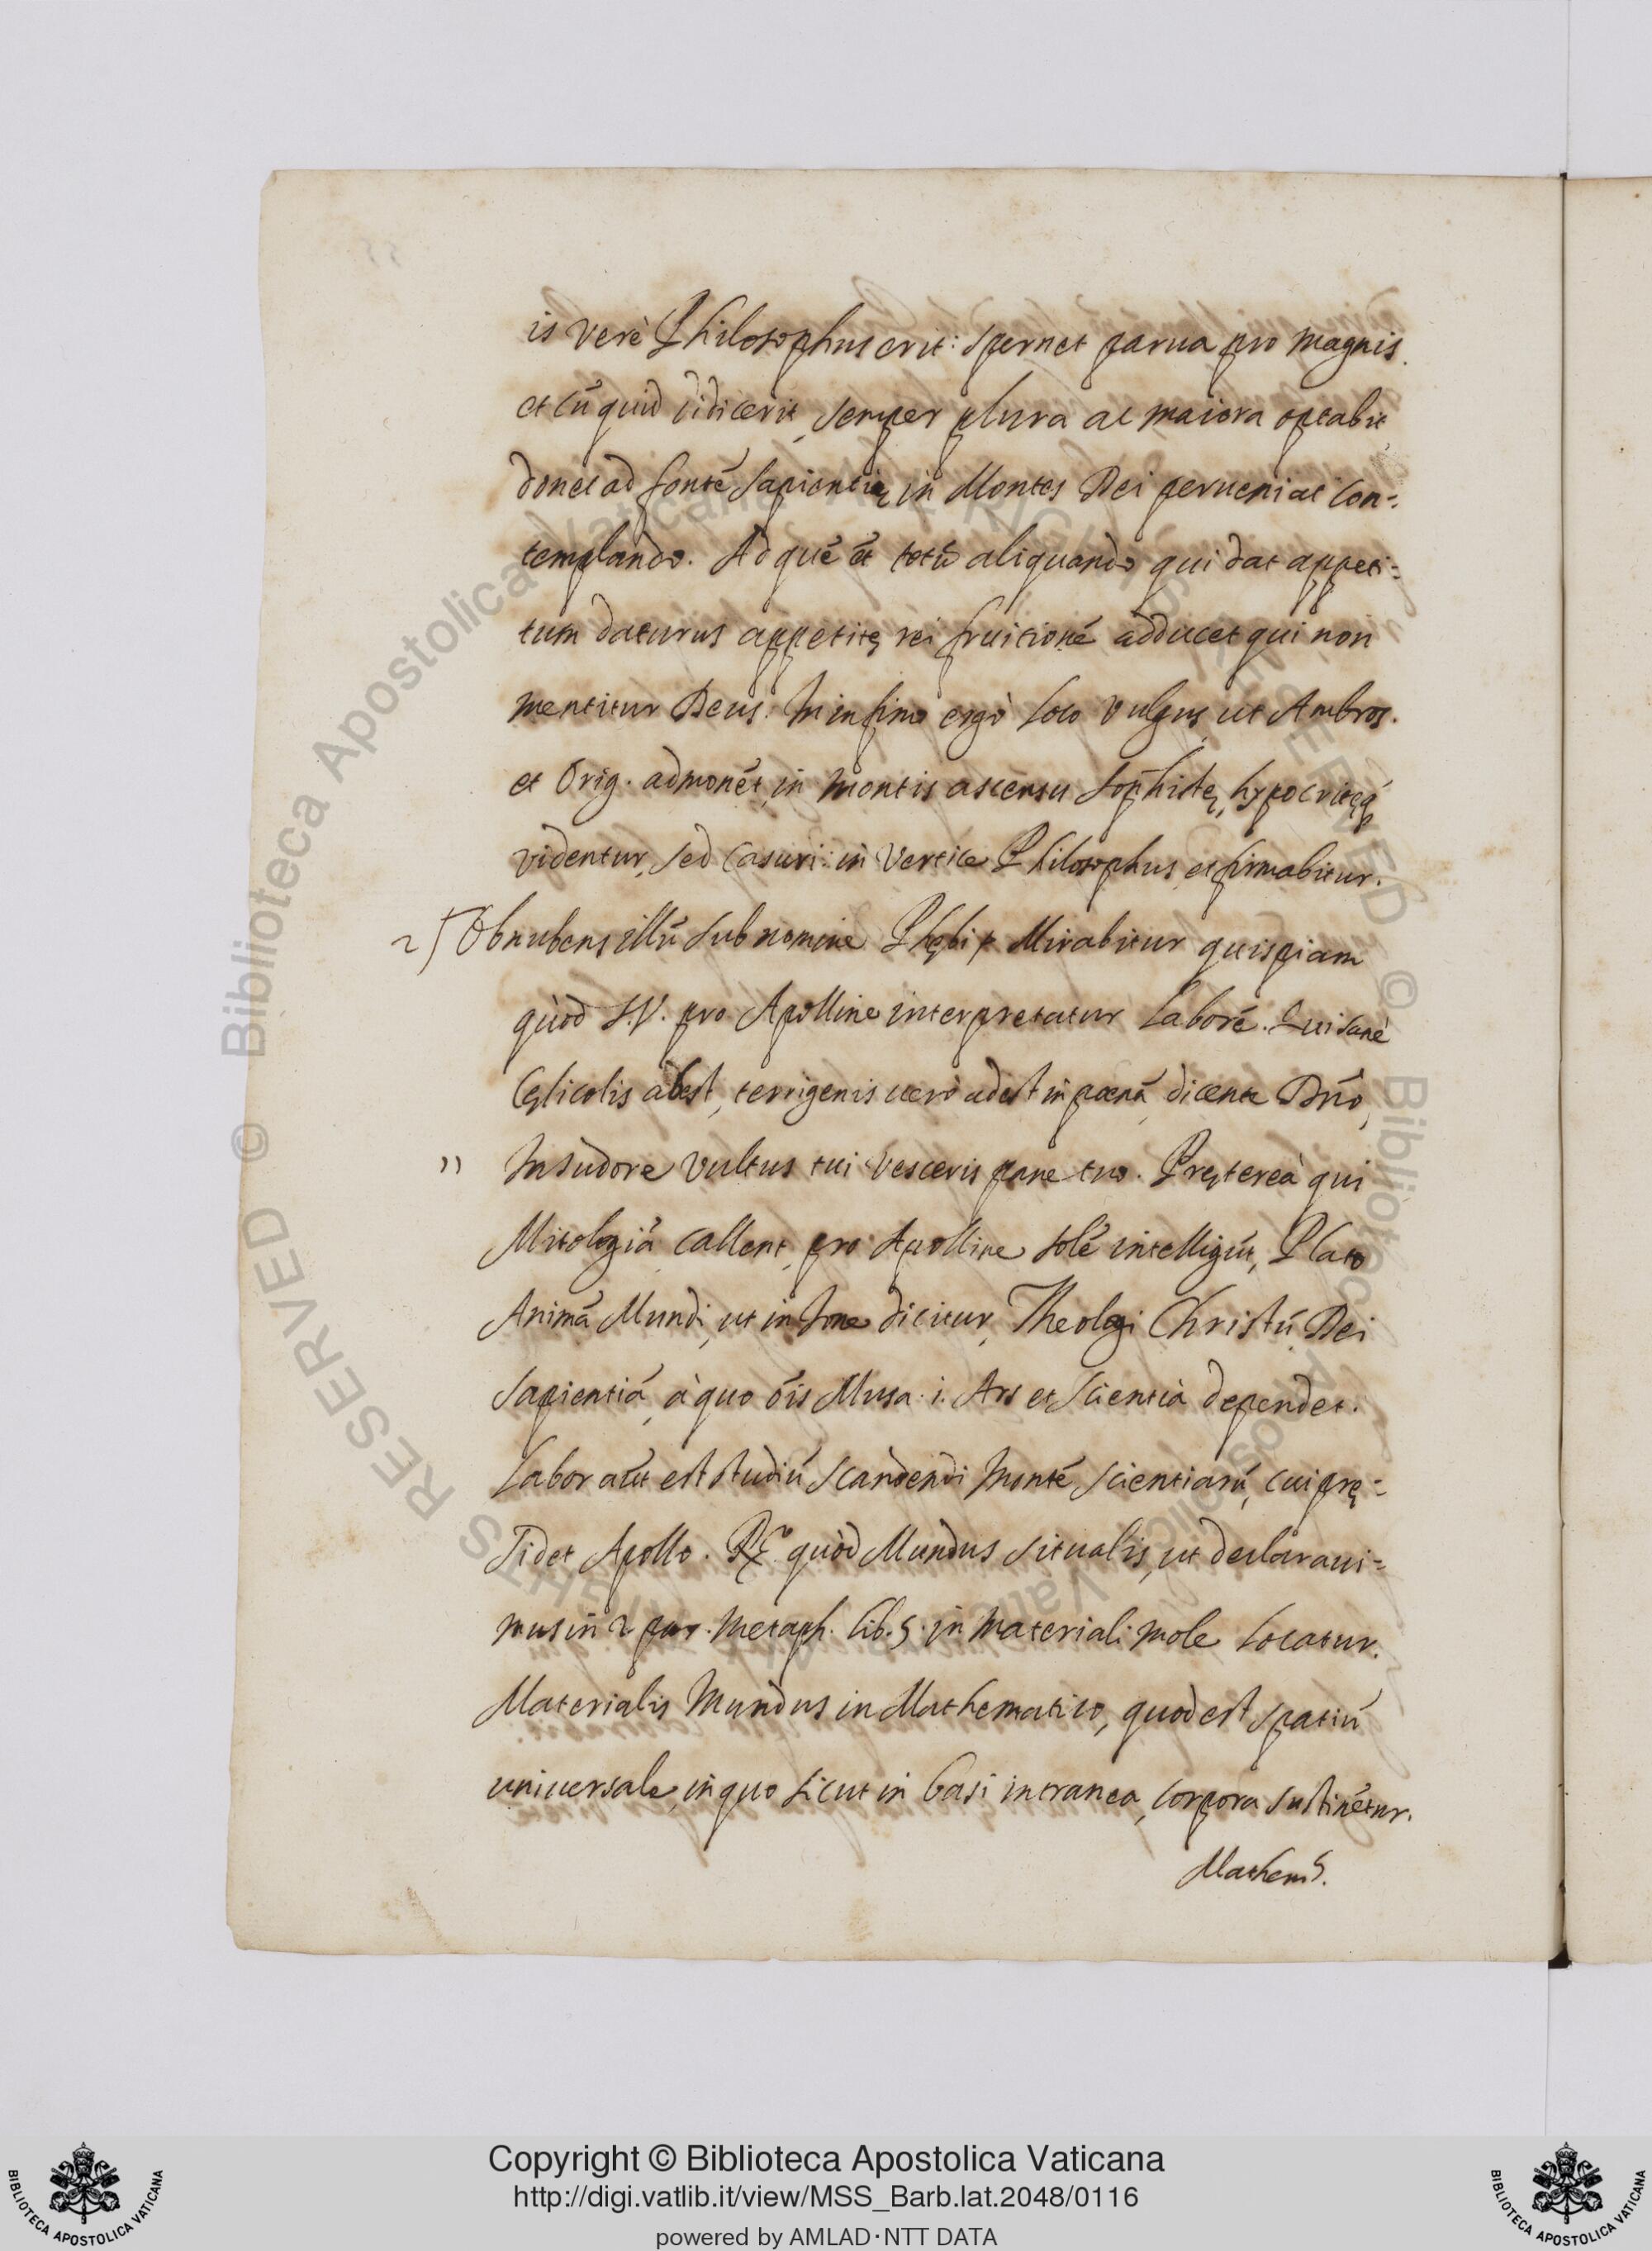 is verè Philosophus erit: spernet parua pro magnis.
et cū quid didicerit, semper plura ac maiora optabit
donec ad fontē sapientię in Montes Dei perueniat con=
templando. Ad quē et totū aliquando qui dat appeti=
tum daturus appetitę rei fruitionē adducet qui non
mentitur Deus. In infimo ergò loco vulgus, ut Ambros.
et Orig. admonēt, in montis ascensu sophistę, hypocritęq́
videntur, sed casuri: in vertice Philosophus et firmabitur.
2 Obnubens illū sub nomine Phębi Mirabitur quispiam
quòd S.V. pro Apolline interpretatur Laborē. Qui sanè
Cęlicolis abest, terrigenis verò adest in pœnā, dicente Dn̄o,
" In sudore vultus tui vesceris pane tuo. Pręterea qui
Mitologiā callent, pro Apolline solē intelligūt, Plato
Animā Mundi, ut in Ione dicitur, Theologi Christū Dei
sapientiā, à quo ōis Musa .i. Ars et Scientia dependet.
Labor aūt est studiū scandendi montē scientiarū, cui prę=
sidet Apollo. quòd Mundus situalis, ut declaraui=
mus in 2 par. Metaph. lib. 5. in materiali mole locatur.
Materialis Mundus in Mathematico, quod est spatiū
uniuersale, in quo sicut in basi intranea, corpora sustinētur.
Mathem5.
Copyright © Biblioteca Apostolica Vaticana
http://digi.vatlib.it/view/MSS_Barb.lat.2048/0116
powered by AMLAD·NTT DATA
BIBLIOTECA APOSTOLICA VATICANA
BIBLIOTECA APOSTOLICA VATICANA